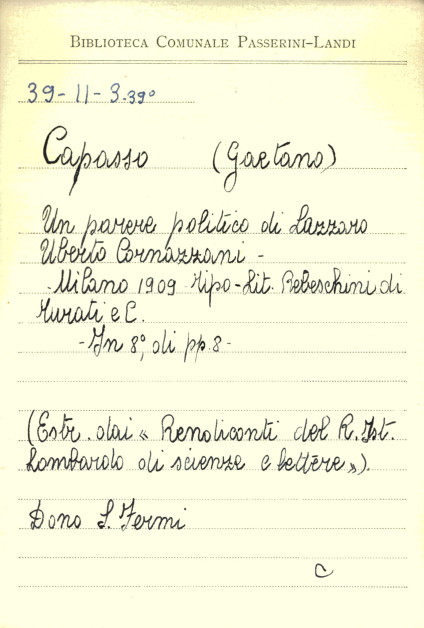 BIBLIOTECA COMUNALE PASSERINI-LANDI
39-11-3.39°
Capasso (Gaetano)
Un parere politico di Lazzaro
Uberto Cornazzani -
- Milano 1909 Tipo-Lit. Rebeschini di
Turati e C.
- In 8°, di pp. 8 -
(Estr. dai « Rendiconti del R. Ist.
Lombardo di scienze e lettere »).
Dono S. Fermi
C